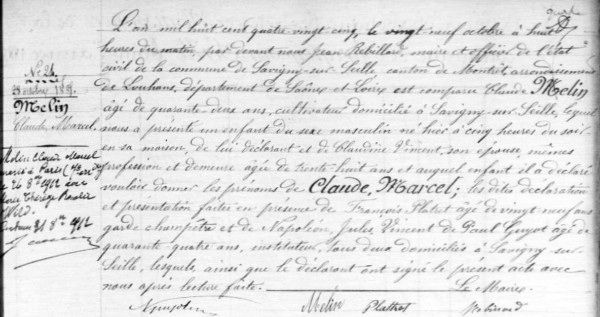 L'an mil huit cent quatre vingt cinq, le vingt neuf octobre à huit
heures du matin, par devant nous Jean Rebillard, maire et officier de l'état
civil de la commune de Savigny-sur-
Seille, canton de Montret, arrondissement
de Louhans, département de Saône et Loire, est comparu Claude Melin
âgé de quarante deux ans, cultivateur domicilié à Savigny-sur-Seille, lequel
nous a présenté un enfant du sexe masculin né hier à cinq heures du soir
en sa maison, de lui déclarant et de Claudine Vincent, son épouse, mêmes
profession et demeure âgée de trente huit ans et auquel enfant il a déclaré
vouloir donner les prénoms de Claude, Marcel; les dites déclaration
et présentation faites en présence de François Platret âgé de vingt neuf ans
garde champêtre et de Napoléon, Jules Vincent de Paul Guyot âgé de
quarante quatre ans, instituteur, tous deux domiciliés à Savigny-sur-
Seille, lesquels, ainsi que le déclarant ont signé le présent acte avec
nous après lecture faite.
Le Maire
Melin Platret
No 24
Melin
Claude Marcel
Melin Claude Marcel
marié à Paris
le 26 8bre 1912 avec
Marie Thérèse